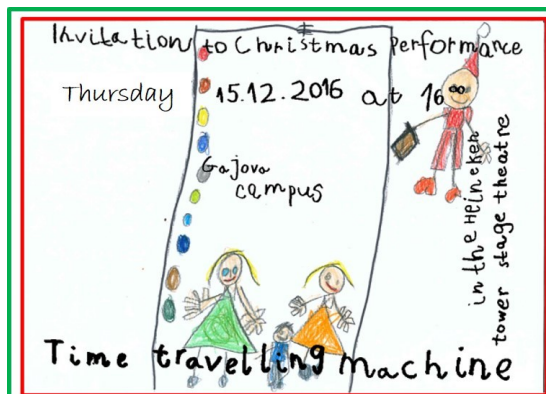 Invitation to Christmas Performance
Thursday 15.12.2016 at 16
Gajova
campus
in the Heineken
tower stage theatre
Time travelling machine